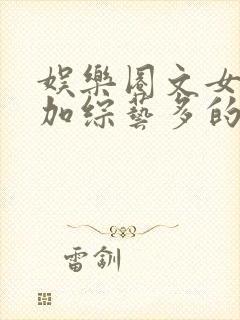 娛樂圈文女
加綜藝多的
雷釧